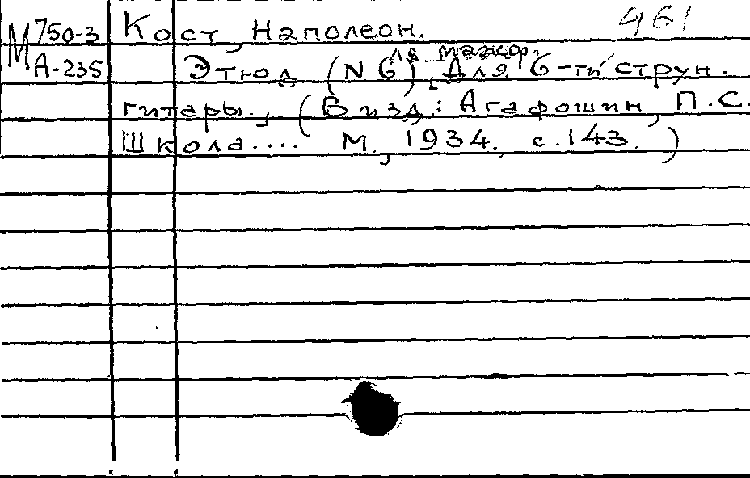 М 750-3 Кост, Наполеон. 461
А-235 Этюд (N 6) Ля мажор. Для 6-ти струн.
гитары., (В изд.: Агафошин, П.С.
Школа.... М., 1934. с.143.)